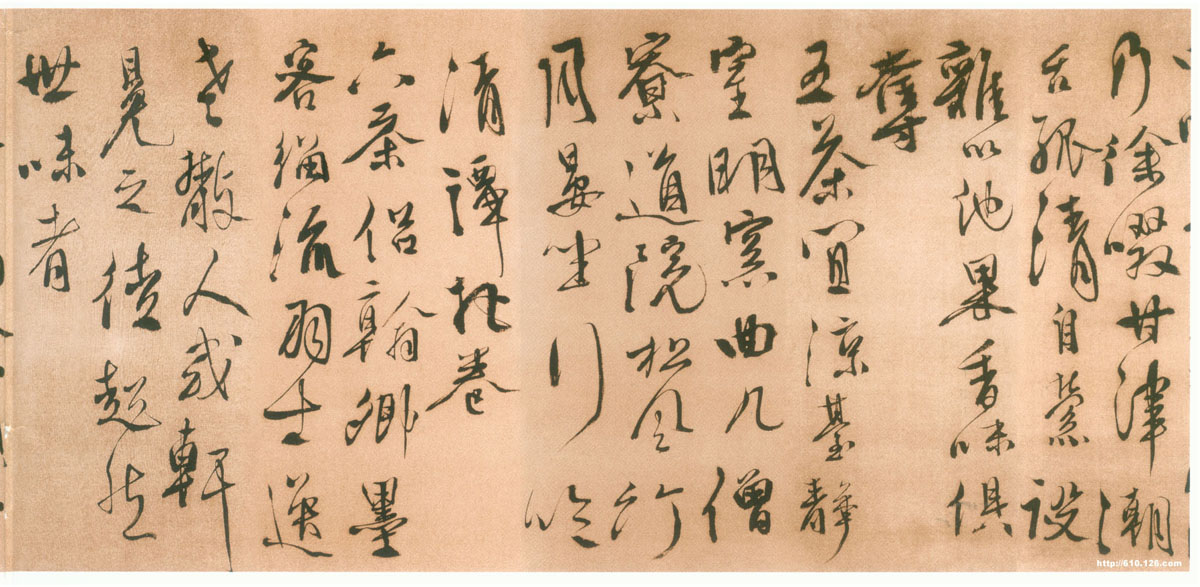 乃徐啜甘津潮
舌孤清自縈設
雜以他果香味俱
奪
五茶宜涼臺靜
室明窗曲几僧
寮道院松風竹
月晏坐行吟
清譚把卷
六茶侶翰卿墨
客緇流羽士逸
老散人或軒
冕之徒超然
世味者
http://610.126.com